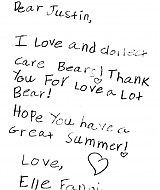 Dear Justin,
I Love and collect
care Bears! Thank
You For Love a Lot
Bear!
Hope You have a
Great Summer!
Love,
Elle